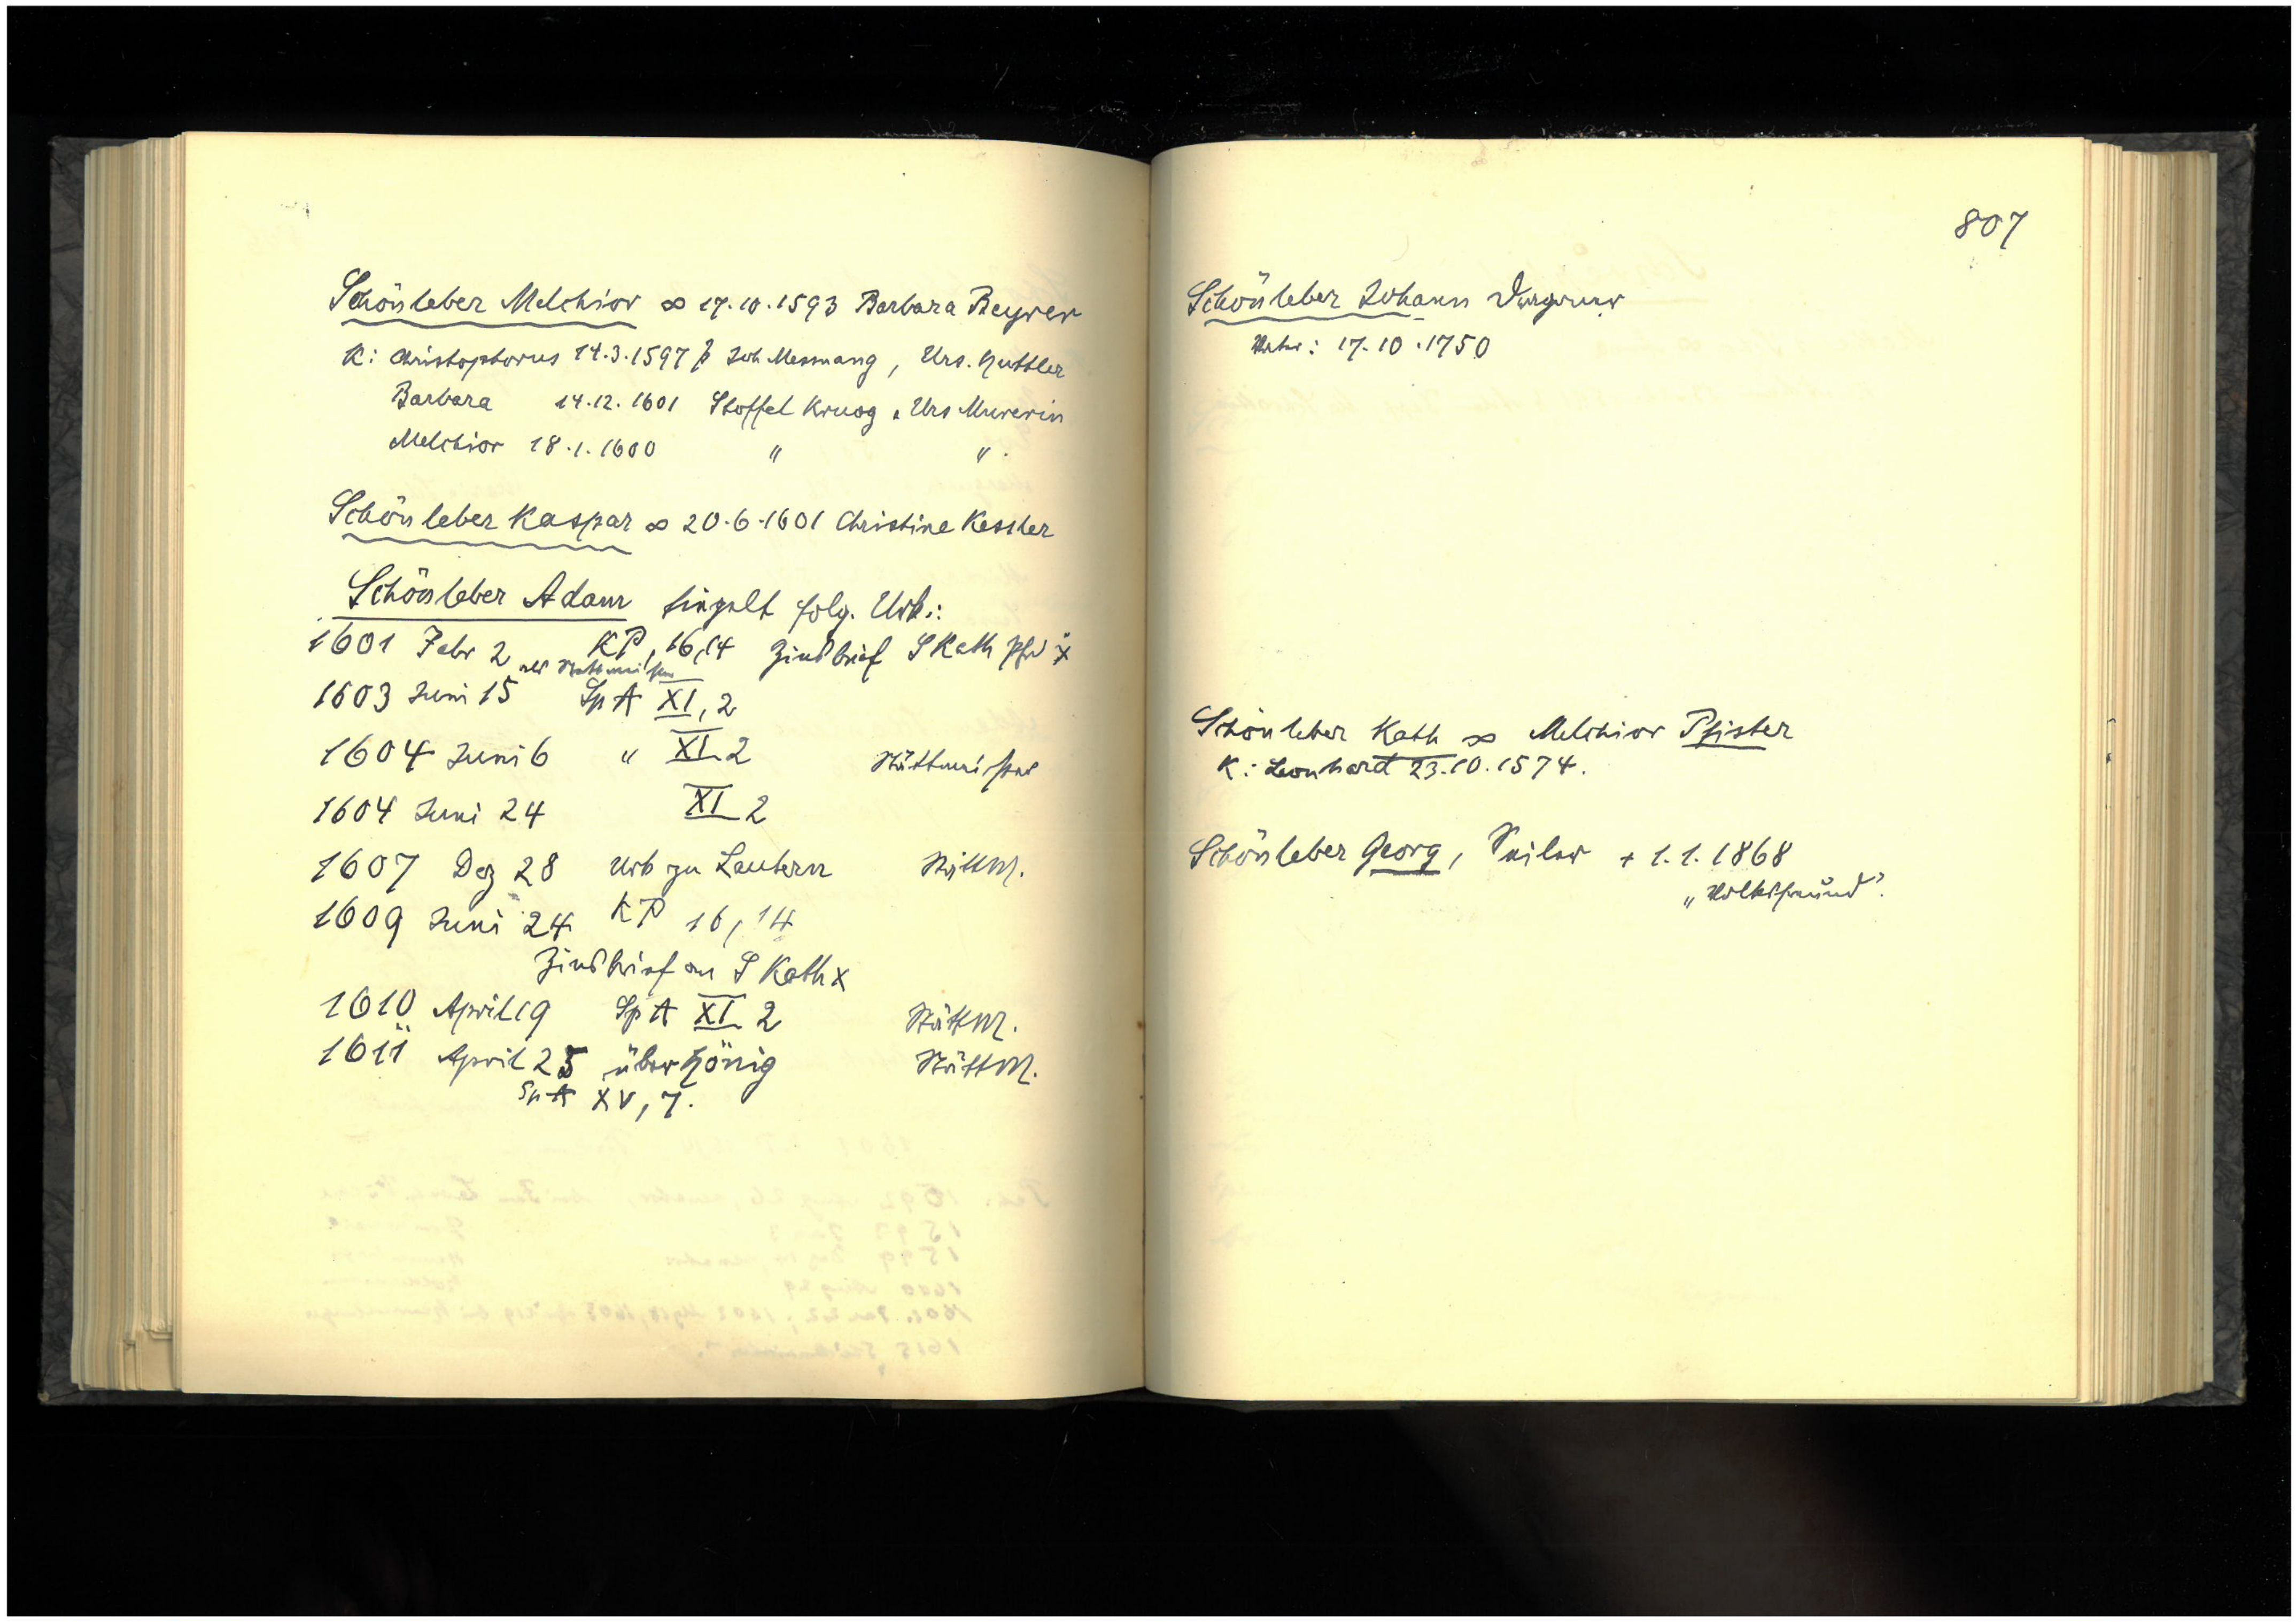 Schönleber Melchior ∞ 17.10.1593 Barbara Beyrer
K: Christophorus 14.3.1597 Joh Messnang, Urs. Huttler
Barbara 14.12.1601 Stoffel Kruog, Urs Murerin
Melchior 18.1.1600 " "
Schönleber Kaspar ∞ 20.6.1601 Christine Kessler
Schönleber Adam siegelt folg. Urk.:
1601 Febr 2 KP, 16,14 Zinsbrief S Kath Pfd x
als Stättmeister
1603 Juni 15 SpA XI, 2
1604 Juni 6 " XI 2 Stättmeister
1604 Juni 24 XI 2
1607 Dez 28 Urb zu Lautern StättM.
1609 Juni 24 KP 16,14
Zinsbrief an S Kath x
1610 April 19 SpA XI 2 StättM.
1611 April 25 über Hönig StättM.
SpA XV, 7.
807
Schönleber Johann
Vater: 17.10.1750
Schönleber Kath ∞ Melchior Pfister
K: Leonhard 23.10.1574.
Schönleber Georg, Seiler + 1.1.1868
„Volksfreund".